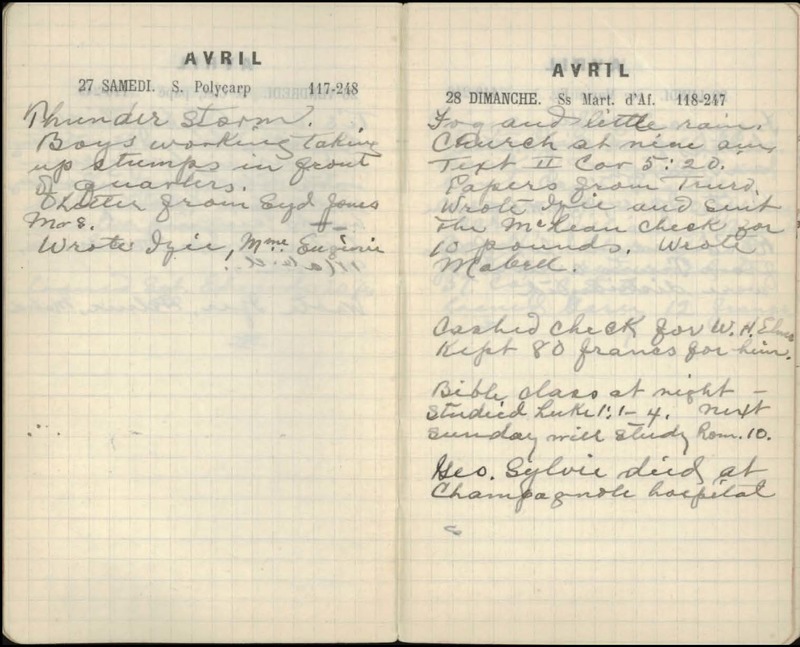 AVRIL
27 SAMEDI. S. Polycarp 117-248
Thunder storm.
Boys working taking
up stumps in front
of quarters.
Letter from Syd Jones
Mrs.
Wrote Izie, Mme. Eugenie
AVRIL
28 DIMANCHE. Ss Mart. d'Af. 118-247
Fog and little rain.
Church at nine am,
Text II Cor 5:20.
Papers from Truro.
Wrote Izie and sent
the McLean check for
10 pounds. Wrote
Mabell.
Cashed check for W. H.
Kept 80 francs for him.
Bible class at night –
studied Luke 1:1-4. next
sunday will study Rom. 10.
Geo. Sylvie died at
Champagnole hospital